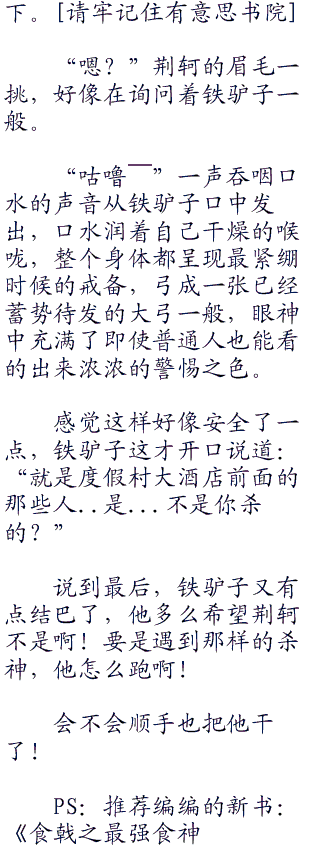 下。[请牢记住有意思书院]
“嗯？”荆轲的眉毛一
挑，好像在询问着铁驴子一
般。
“咕噜——”一声吞咽口
水的声音从铁驴子口中发
出，口水润着自己干燥的喉
咙，整个身体都呈现最紧绷
时候的戒备，弓成一张已经
蓄势待发的大弓一般，眼神
中充满了即使普通人也能看
的出来浓浓的警惕之色。
感觉这样好像安全了一
点，铁驴子这才开口说道：
“就是度假村大酒店前面的
那些人..是...不是你杀
的？”
说到最后，铁驴子又有
点结巴了，他多么希望荆轲
不是啊！要是遇到那样的杀
神，他怎么跑啊！
会不会顺手也把他干
了！
PS：推荐编编的新书：
《食戟之最强食神